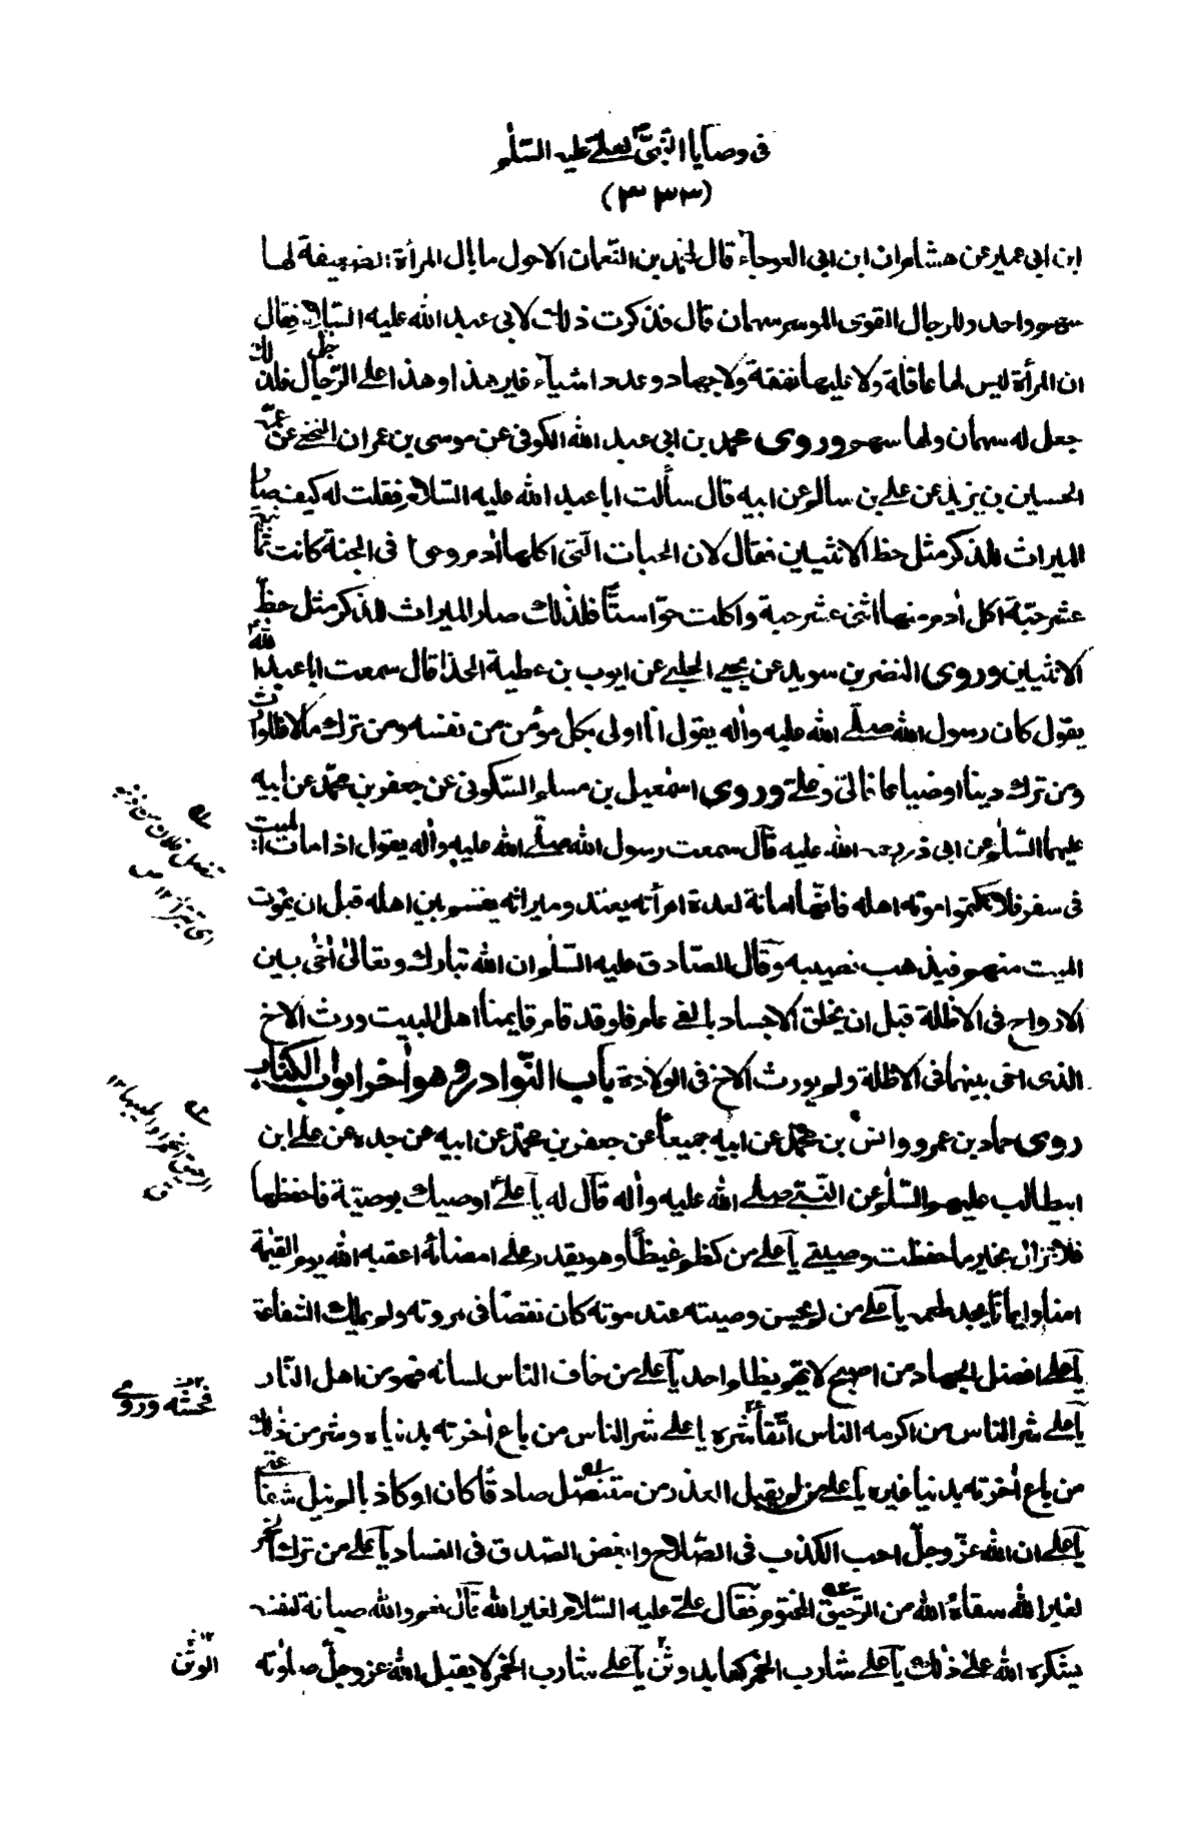 في وصايا النبي لعلي عليه السلم
(٣٣٣)
ابن ابي عمير عن هشام ان ابن ابي العوجاء قال لمحمد بن النعمان الاحول ما بال المرأة الضعيفة لها
سهم واحد وللرجال القوى الموسر سهمان قال فذكرت ذلك لابي عبد الله عليه السلام فقال
ان المرأة ليس لها عاقلة ولا عليها نفقة ولا جهاد وعدد اشياء غير هذا وهذا على الرجال فلذلك
جعل له سهمان ولها سهم وروى محمد بن ابي عبد الله الكوفي عن موسى بن عمران النخعي عن عمه
الحسين بن يزيد عن علي بن سالم عن ابيه قال سألت ابا عبد الله عليه السلام فقلت له كيف صار
الميراث للذكر مثل حظ الانثيين فقال لان الحبات التي اكلها أدم وحوا في الجنة كانت ثمانية
عشر حبة اكل أدم منها اثنى عشر حبة واكلت حوا ستا فلذلك صار الميراث للذكر مثل حظ
الانثيين وروى النضر بن سويد عن يحيى الحلبي عن ايوب بن عطية الحذا قال سمعت ابا عبد الله
يقول كان رسول الله صلى الله عليه وأله يقول انا اولى بكل مؤمن من نفسه ومن ترك مالا فللوارث
ومن ترك دينا او ضياعا فالي وعلي وروى اسمعيل بن مسلم السكوني عن جعفر بن محمد عن ابيه
عليهما السلم عن ابي ذر رحمة الله عليه قال سمعت رسول الله صلى الله عليه وأله يقول اذا مات الميت
في سفر فلا تكتموا موته اهله فانها امانة لعدة امرأته يعتد وميراثه يقسم بين اهله قبل ان يموت
الميت منهم فيذهب نصيبه وقال الصادق عليه السلم ان الله تبارك وتعالى أخى بين
الارواح في الاظلة قبل ان يخلق الاجساد بالفى عام فلو قد قام قايمنا اهل البيت ورث الاخ
الذي اخى بينهما في الاظلة ولم يورث الاخ في الولادة باب النوادر وهو أخر ابواب الكتاب
روى حماد بن عمرو وانس بن محمد عن ابيه جميعا عن جعفر بن محمد عن ابيه عن جده عن علي ابن
ابيطالب عليهم السلم عن النبي صلى الله عليه وأله قال له يا علي اوصيك بوصية فاحفظها
فلا تزال بخير ما حفظت وصيتي يا علي من كظم غيظا وهو يقدر على امضائه اعقبه الله يوم القيمة
امنا وايمانا يجد طعمه يا علي من لم يحسن وصيته عند موته كان نقصا في مروته ولم يملك الشفاعة
يا علي افضل الجهاد من اصبح لا يهم بظلم احد يا علي من خاف الناس لسانه فهو من اهل النار
يا علي شر الناس من اكرمه الناس اتقاء شره يا علي شر الناس من باع أخرته بدنياه وشر من ذلك
من باع أخرته بدنيا غيره يا علي من لم يقبل العذر من متنصل صادقا كان او كاذبا لم ينل شفاعتي
يا علي ان الله عز وجل احب الكذب في الصلاح وابغض الصدق في الفساد يا علي من ترك الخمر
لغير الله سقاه الله من الرحيق المختوم فقال علي عليه السلام لغير الله قال نعم والله صيانة لنفسه
يشكره الله على ذلك يا علي شارب الخمر كعابد وثن يا علي شارب الخمر لا يقبل الله عز وجل صلوته
فحشه وروي
الوثن